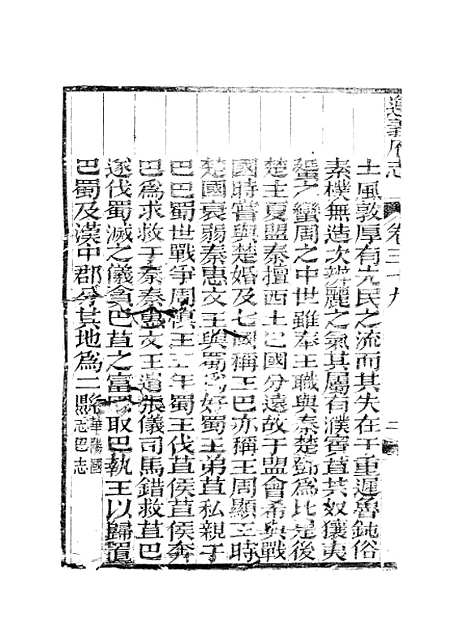 遵義府志 卷三十九 二
土風敦厚有先民之流而其失在于重遲魯鈍俗
素樸無造次辨麗之氣其屬有濮賨苴共奴獽夷
蜑之蠻周之中世雖奉王職與秦楚鄧為比是後
楚主夏盟秦擅西土巴國分遠故于盟會希與戰
國時嘗與楚婚及七國稱王巴亦稱王周顯王時
楚國衰弱秦惠文王與蜀為好蜀王弟苴私親于
巴巴蜀世戰爭周慎王五年蜀王伐苴侯苴侯奔
巴為求救于秦秦惠文王遣張儀司馬錯救苴巴
遂伐蜀滅之儀貪巴苴之富取巴執王以歸置
巴蜀及漢中郡分其地為二縣華陽國
志巴志